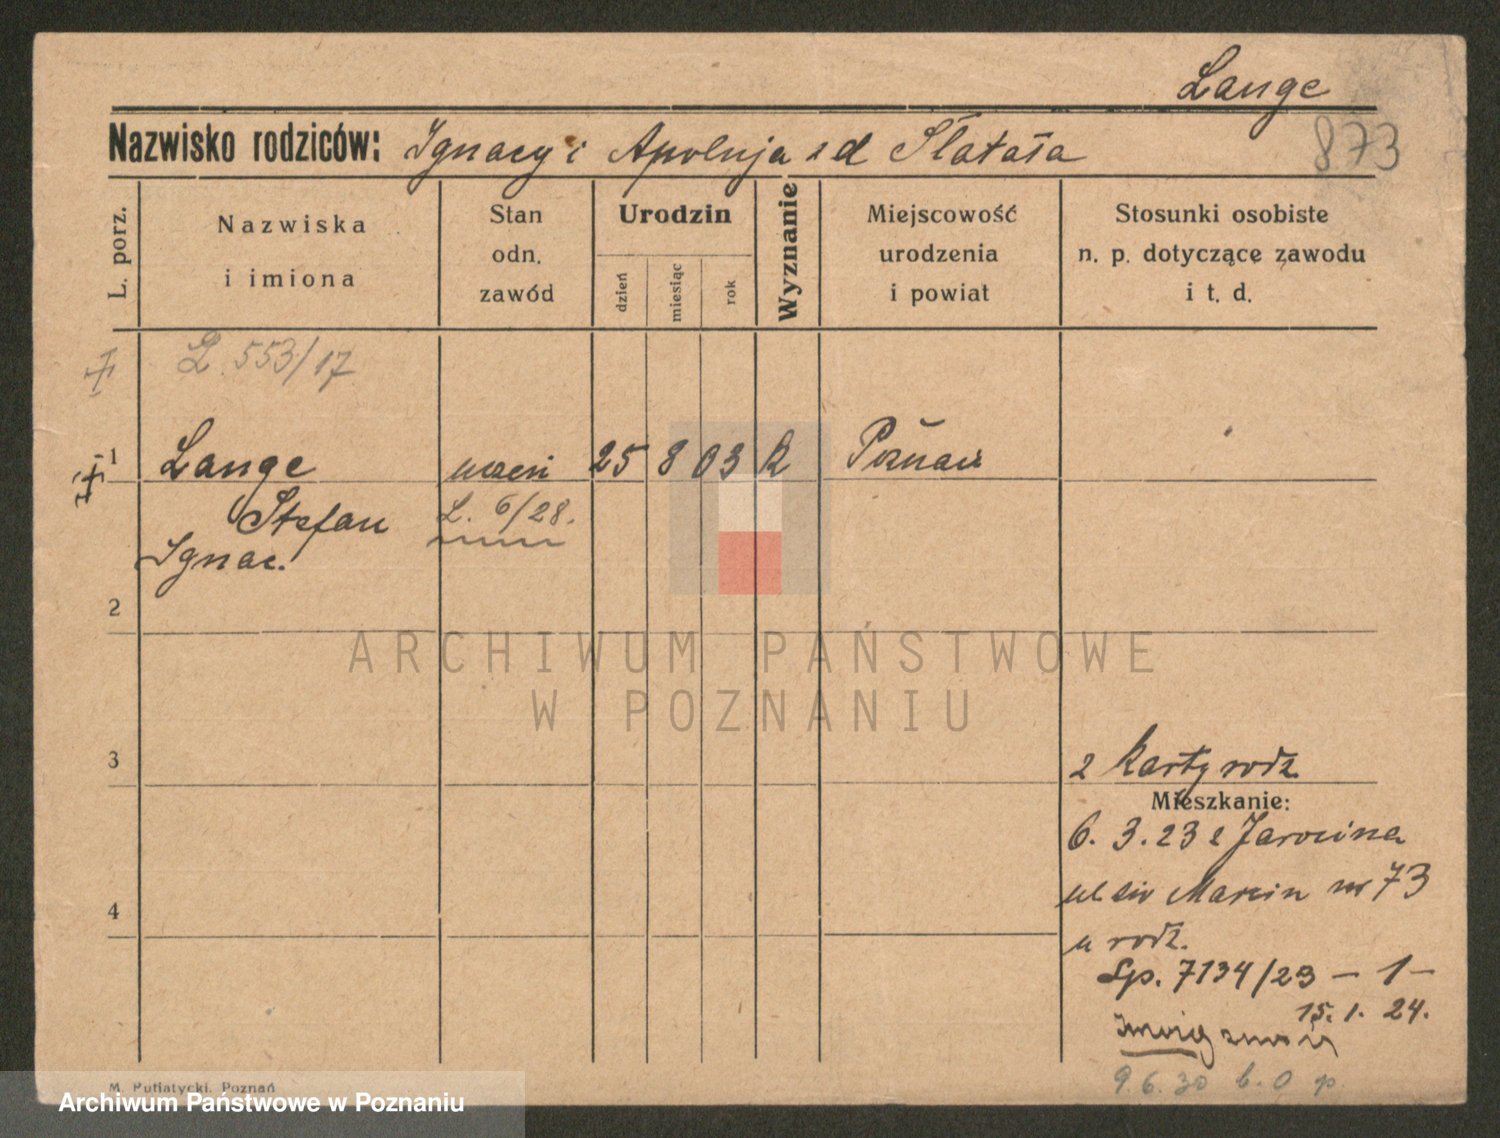 Lange
Nazwisko rodziców: Ignacy i Apolnja z d Slatała
873
L. porz.
Nazwiska
i imiona
Stan
odn.
zawód
Urodzin
dzień
miesiąc
rok
Wyznanie
Miejscowość
urodzenia
i powiat
Stosunki osobiste
n. p. dotyczące zawodu
i t. d.
L 553/17
1 Lange uczeń 25 8 03 k Poznań
Stefan L. 6/28.
Ignac.
2
ARCHIWUM PAŃSTWOWE
W POZNANIU
3 2 karty rodz
Mieszkanie:
6. 3. 23 z Jarocina
ul św Marcin nr 73
4
u rodz.
Sp. 7134/23 – 1 –
15. 1. 24.
9. 6. 30 b. O p.
M. Putiatycki, Poznań
Archiwum Państwowe w Poznaniu